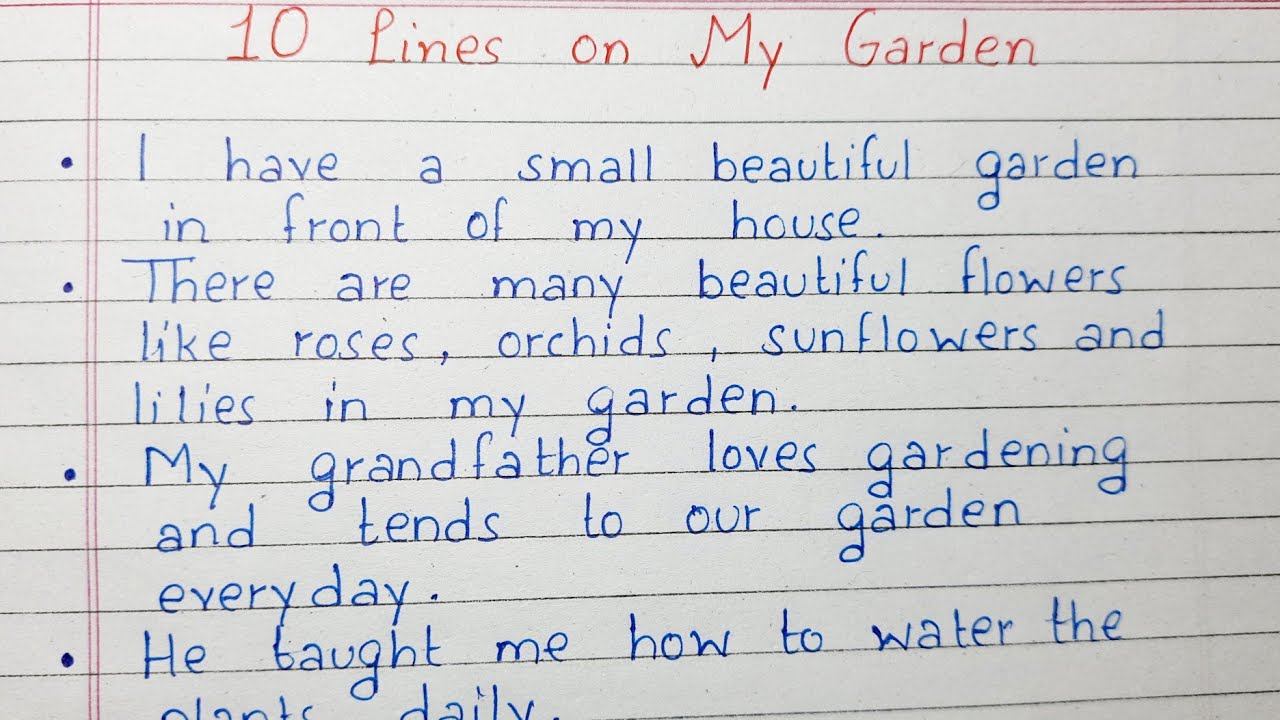 10 Lines on My Garden
• I have a small beautiful garden
in front of my house.
• There are many beautiful flowers
like roses, orchids, sunflowers and
lilies in my garden.
• My grandfather loves gardening
and tends to our garden
everyday.
• He taught me how to water the
plants daily.